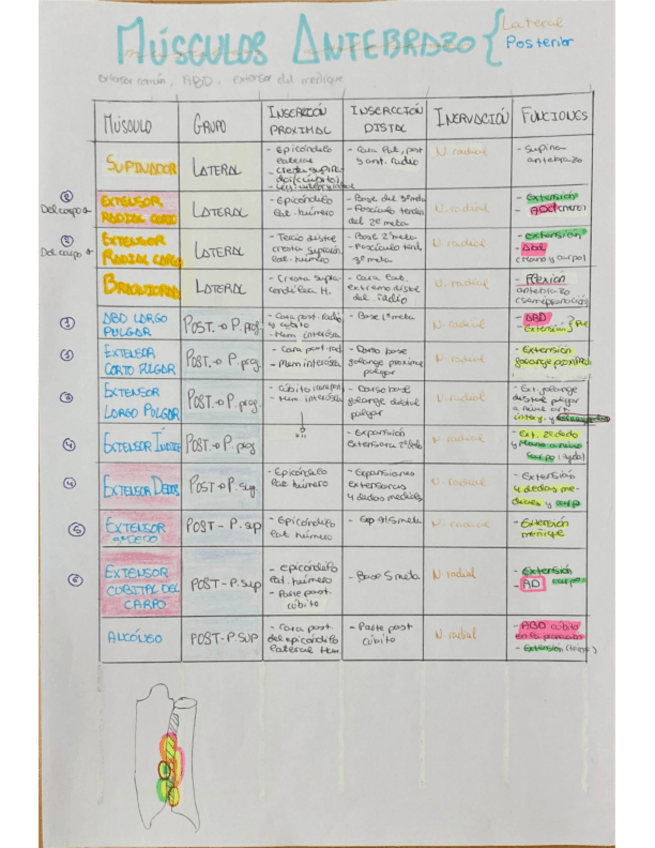 MÚSCULOS ANTEBRAZO { Lateral
Posterior
extensor común, ABD, extensor del meñique
MÚSCULO GRUPO INSERCIÓN PROXIMAL INSERCCIÓN DISTAL INERVACIÓN FUNCIONES
SUPINADOR LATERAL
- Epicóndilo
lateral
- Cara lat, post
y ant. radio
N. radial
- Supina
antebrazo
② Del carpo
EXTENSOR
RADIAL CORTO
LATERAL
- Epicóndilo
lat. húmero
- Base del 3º meta
del 2º meta
N. radial
- Extensión
② Del carpo
EXTENSOR
RADIAL LARGO
LATERAL
- Tercio distal
lat. húmero
- Base 2º meta
3º meta
N. radial
- extensión
(mano y carpo)
LATERAL
- Cresta supra-
condílea H.
- Cara lat.
extremo distal
del radio
N. radial
- Flexión
antebrazo
(semipronación)
①
ABD LARGO
PULGAR
POST. → P. prof.
- Cara post. radio
y cúbito
- Mem interósea
- Base 1º meta
N. radial
- ABD
- Extensión
①
EXTENSOR
CORTO PULGAR
POST. → P. prof.
- Cara post. rad.
- Mem interósea
- Dorso base
falange proximal
pulgar
N. radial
- Extensión
falange proximal
③
EXTENSOR
LARGO PULGAR
POST. → P. prof.
- Mem. interósea
- Dorso base
falange distal
pulgar
N. radial
- Ext. falange
distal pulgar
④
EXTENSOR ÍNDICE
POST. → P. prof
- Expansión
extensora 2º dedo
N. radial
- Ext. 2º dedo
y mano a nivel
carpo
④
EXTENSOR DEDOS
POST → P. sup.
- Epicóndilo
lat. húmero
- Expansiones
extensoras
4 dedos mediales
N. radial
- Extensión
4 dedos me-
diales y carpo
⑤
EXTENSOR
POST - P. sup
- Epicóndilo
lat. húmero
N. radial
- Extensión
meñique
⑥
EXTENSOR
CUBITAL DEL
CARPO
POST - P. sup
- epicóndilo
lat. húmero
- Parte post.
cúbito
- Base 5 meta
N. radial
- Extensión
- AD carpo
ANCÓNEO
POST - P. SUP
- Cara post.
del epicóndilo
lateral Hum.
- Parte post
cúbito
N. radial
- ABD cúbito
en la pronación
- Extensión